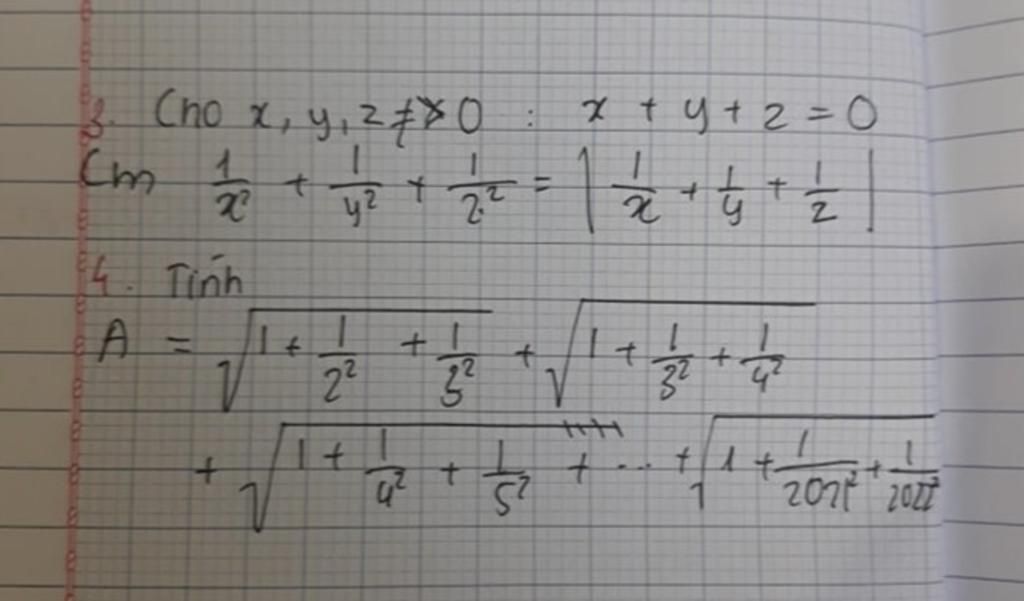 3. Cho x, y, z ≠ 0 : x + y + z = 0
Cm 1/x² + 1/y² + 1/z² = | 1/x + 1/y + 1/z |
4. Tính
A = √(1 + 1/2² + 1/3²) + √(1 + 1/3² + 1/4²)
+ √(1 + 1/4² + 1/5²) + ... + √(1 + 1/2021² + 1/2022²)